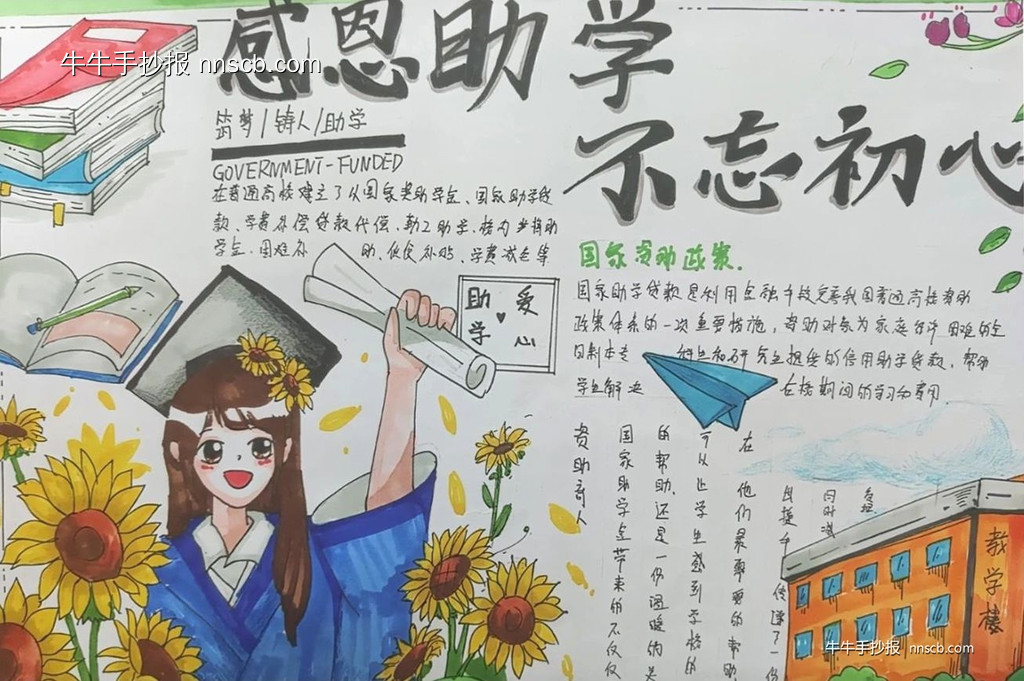 牛牛手抄报 nnscb.com
感恩助学
不忘初心
筑梦/铸人/助学
GOVERNMENT-FUNDED
在普通高校建立了以国家奖助学金、国家助学贷
款、学费补偿贷款代偿、勤工助学、校内奖助
学金、困难补助、伙食补贴、学费减免等
助学
爱心
国家资助政策.
国家助学贷款是利用金融手段完善我国普通高校资助
政策体系的一次重要措施，资助对象为家庭经济困难的全
日制本专科生和研究生提供的信用助学贷款，帮助
学生解决在校期间的学习和费用.
资助育人
国家助学金带来的不仅仅
的帮助.还是一份温暖的关
可以让学生感到学校的
在他们最需要的帮助
传递了一份
教学楼
牛牛手抄报 nnscb.com